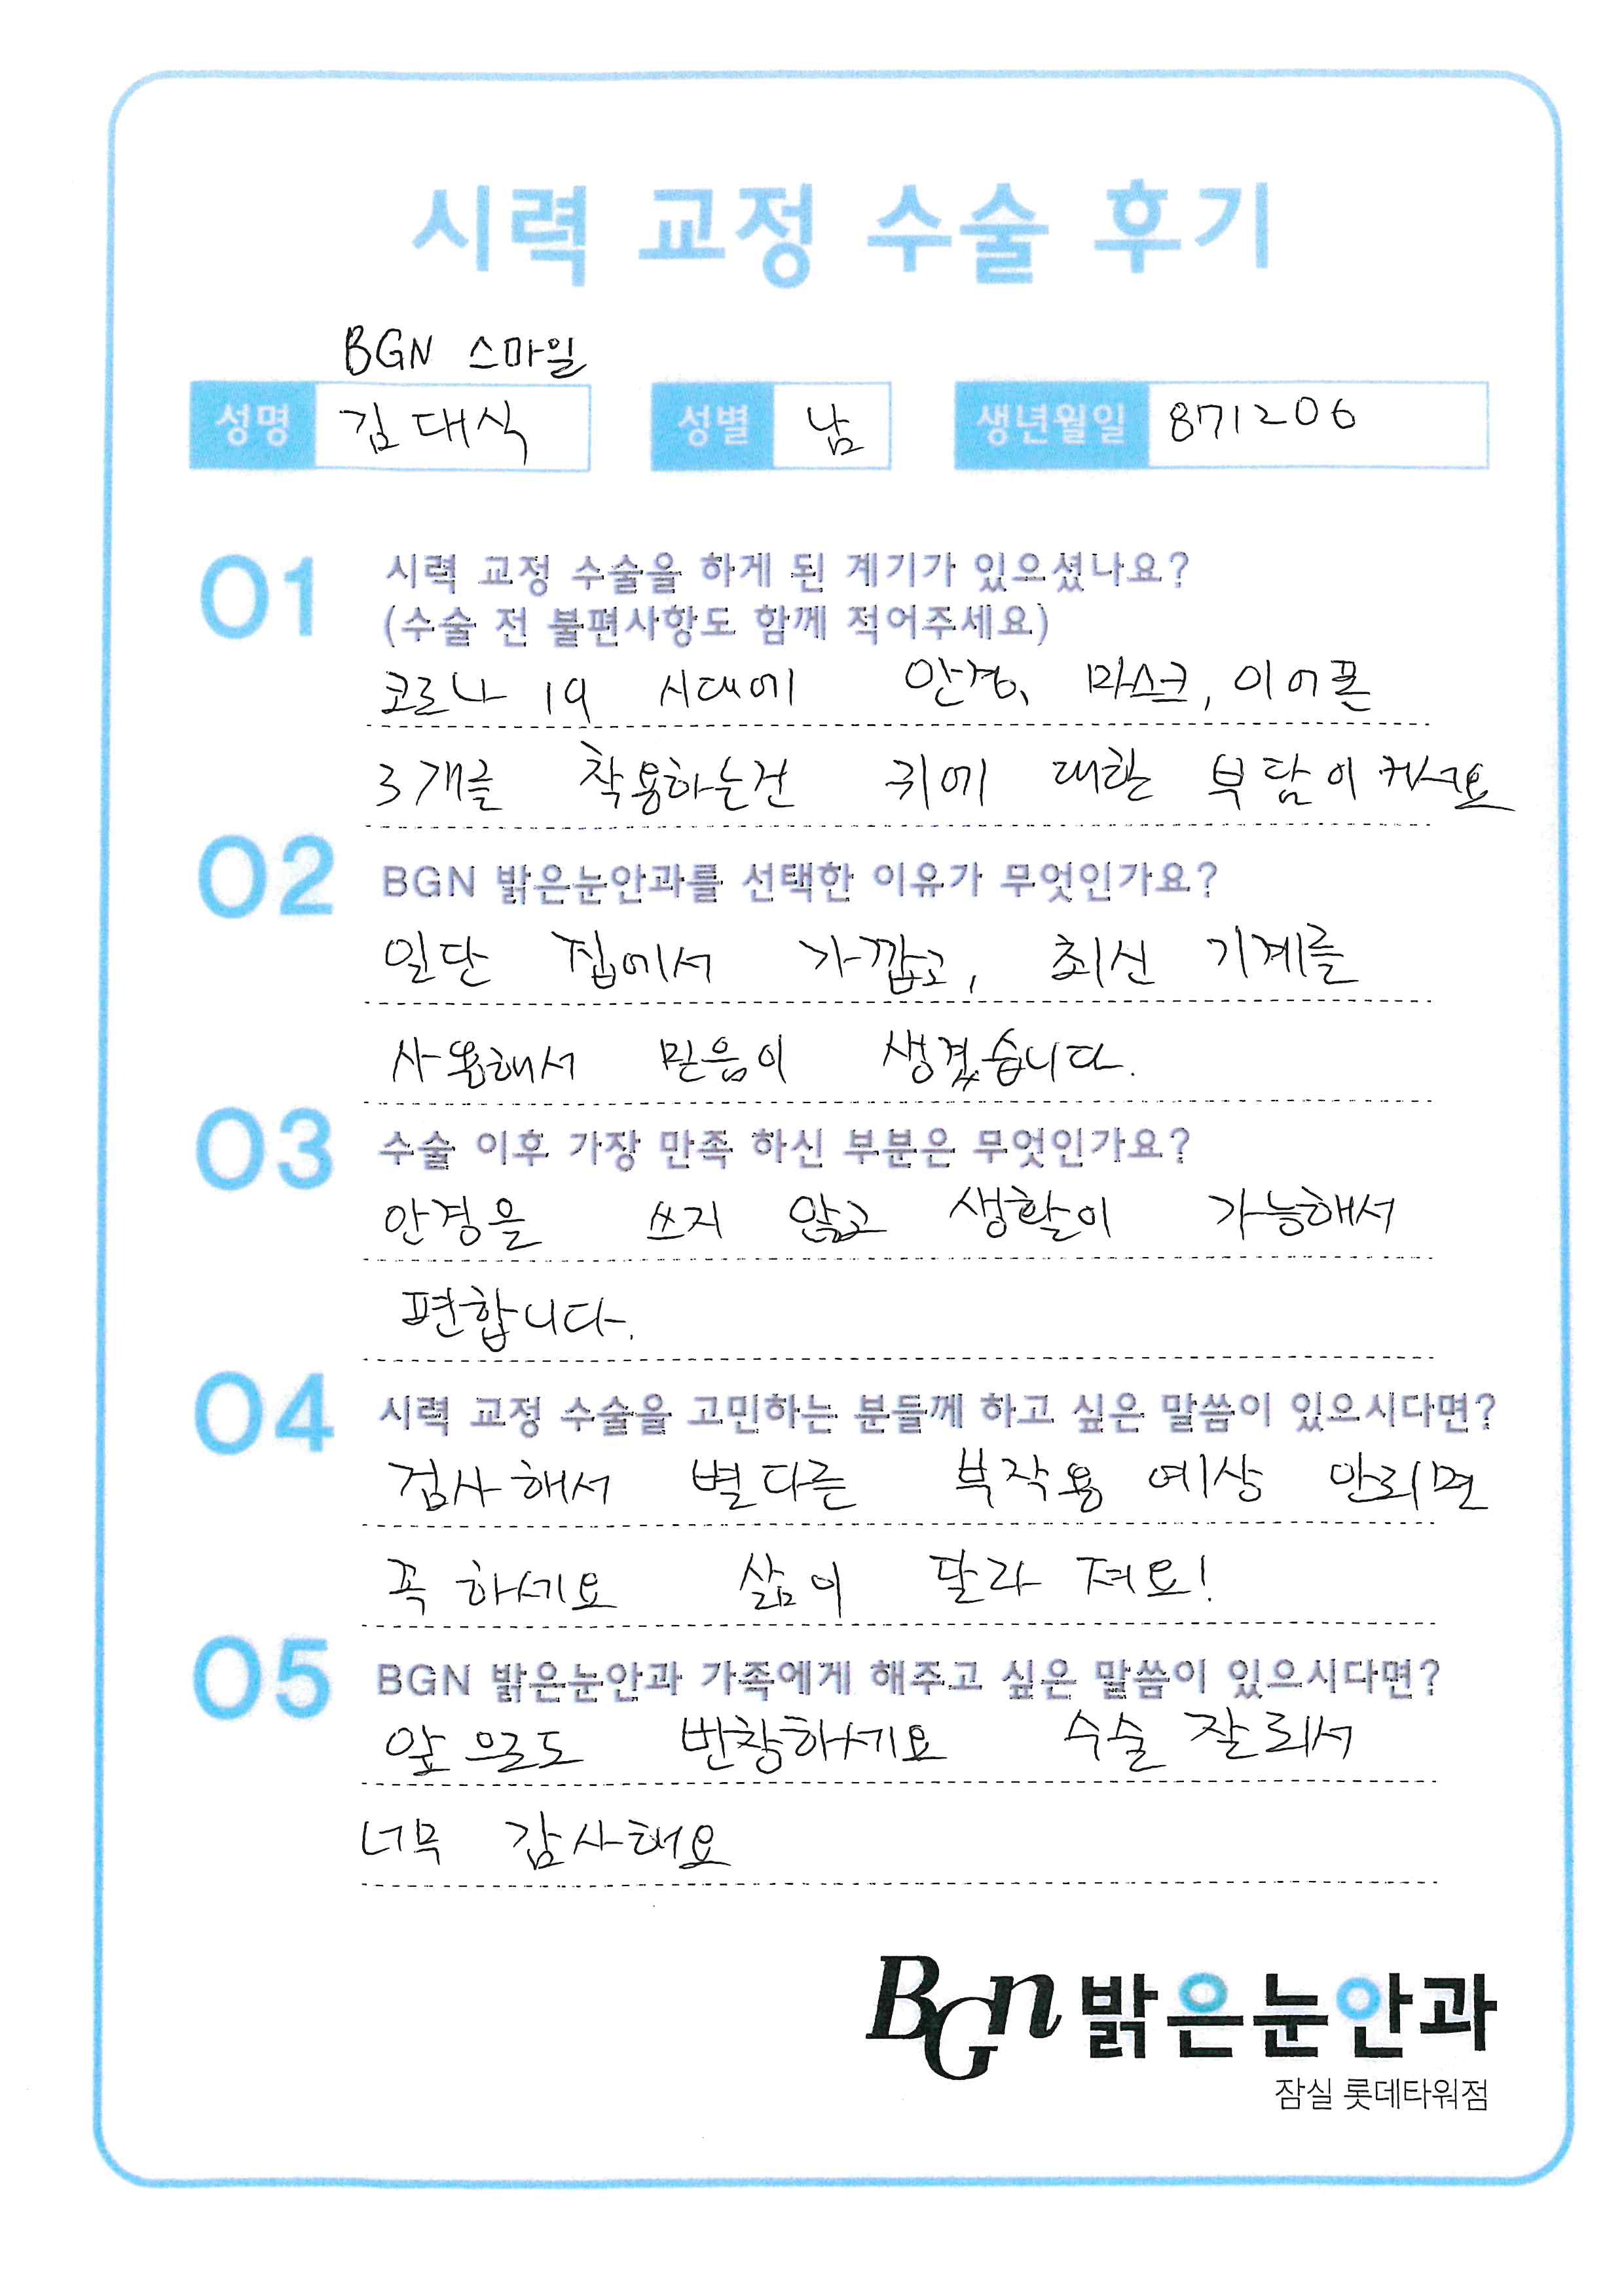 시력 교정 수술 후기
BGN 스마일
성명 김대식 성별 남 생년월일 871206
01 시력 교정 수술을 하게 된 계기가 있으셨나요?
(수술 전 불편사항도 함께 적어주세요)
코로나 19 시대에 안경, 마스크, 이어폰
3개를 착용하는건 귀에 대한 부담이 커서요
02 BGN 밝은눈안과를 선택한 이유가 무엇인가요?
일단 집에서 가깝고, 최신 기계를
사용해서 믿음이 생겼습니다.
03 수술 이후 가장 만족 하신 부분은 무엇인가요?
안경을 쓰지 않고 생활이 가능해서
편합니다.
04 시력 교정 수술을 고민하는 분들께 하고 싶은 말씀이 있으시다면?
검사해서 별다른 부작용 예상 안되면
꼭 하세요 삶이 달라 져요!
05 BGN 밝은눈안과 가족에게 해주고 싶은 말씀이 있으시다면?
앞으로도 번창하세요 수술 잘되서
너무 감사해요
BGN 밝은눈안과
잠실 롯데타워점